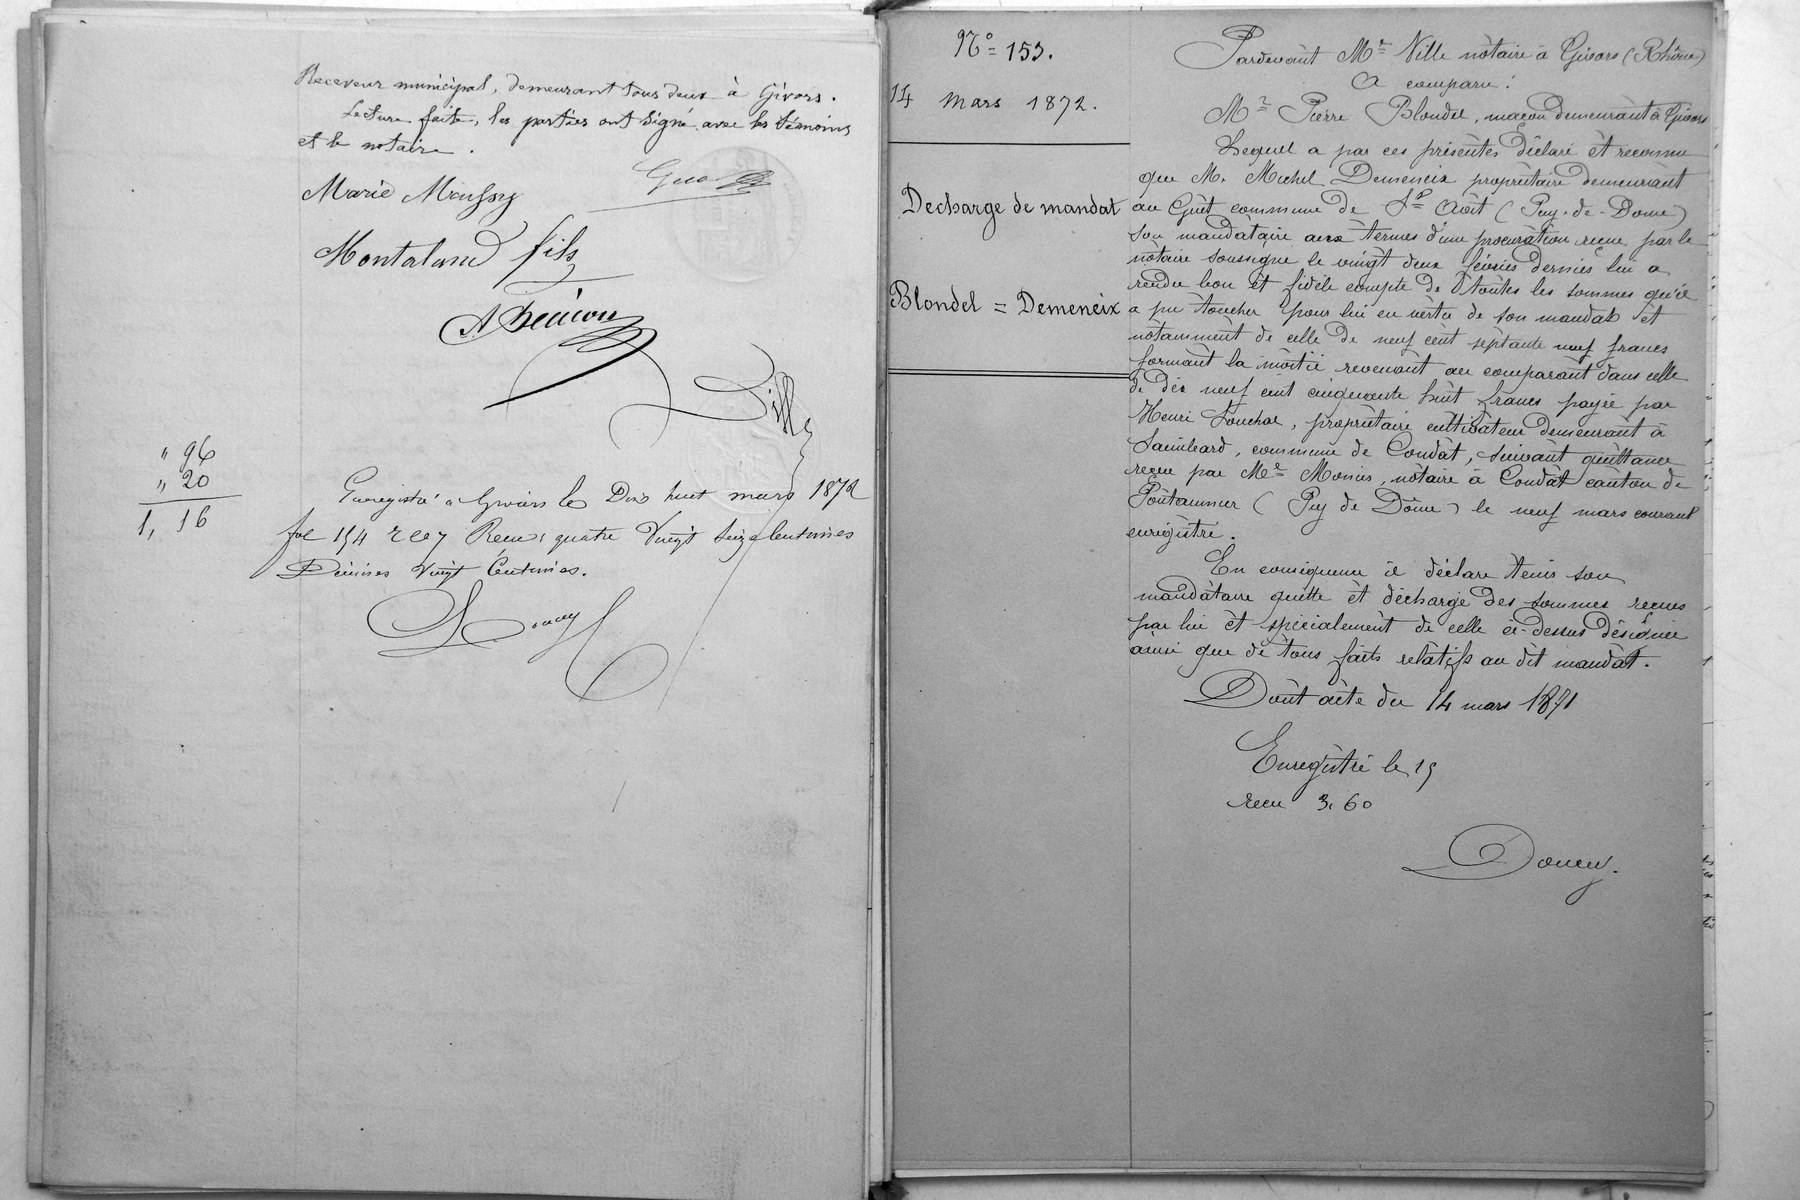 Receveur municipal, demeurant tous deux à Givors.
Lecture faite, les parties ont signé avec les témoins
et le notaire.
Marie
fils
Ville
" 96
" 20
1, 16
Enregistré à Givors le Dix huit mars 1872
fol 154 Recu quatre Vingt Seize Centimes
Décimes Vingt Centimes.
Douey
N° 153.
14 mars 1872.
Decharge de mandat
Blondel = Demeneix
Pardevant Me Ville notaire à Givors (Rhône)
A comparu:
Mr Pierre Blondel, maçon demeurant à Givors
Lequel a par ces présentes déclaré et reconnu
que M. Michel Demeneix propriétaire demeurant
au Guêt commune de St (Puy-de-Dome)
son mandataire aux termes d'une procuration reçue par le
notaire soussigné le vingt deux février dernier lui a
rendu bon et fidèle compte de toutes les sommes qu'il
a pu toucher pour lui en vertu de son mandat et
notamment de celle de neuf cent septante neuf francs
formant la moitié revenant au comparant dans celle
de dix neuf cent cinquante huit francs payée par
Henri, propriétaire cultivateur demeurant à
commune de Condat, suivant quittance
reçue par Me notaire à Condat canton de
(Puy de Dôme) le neuf mars courant
enrégistré.
En conséquence il déclare tenir son
mandataire quitte et décharge des sommes reçues
par lui et spécialement de celle ci-dessus désignée
ainsi que de tous faits relatifs au dit mandat.
Dont acte du 14 mars 1871
Enregistré le 15
recu 3,60
Douey.